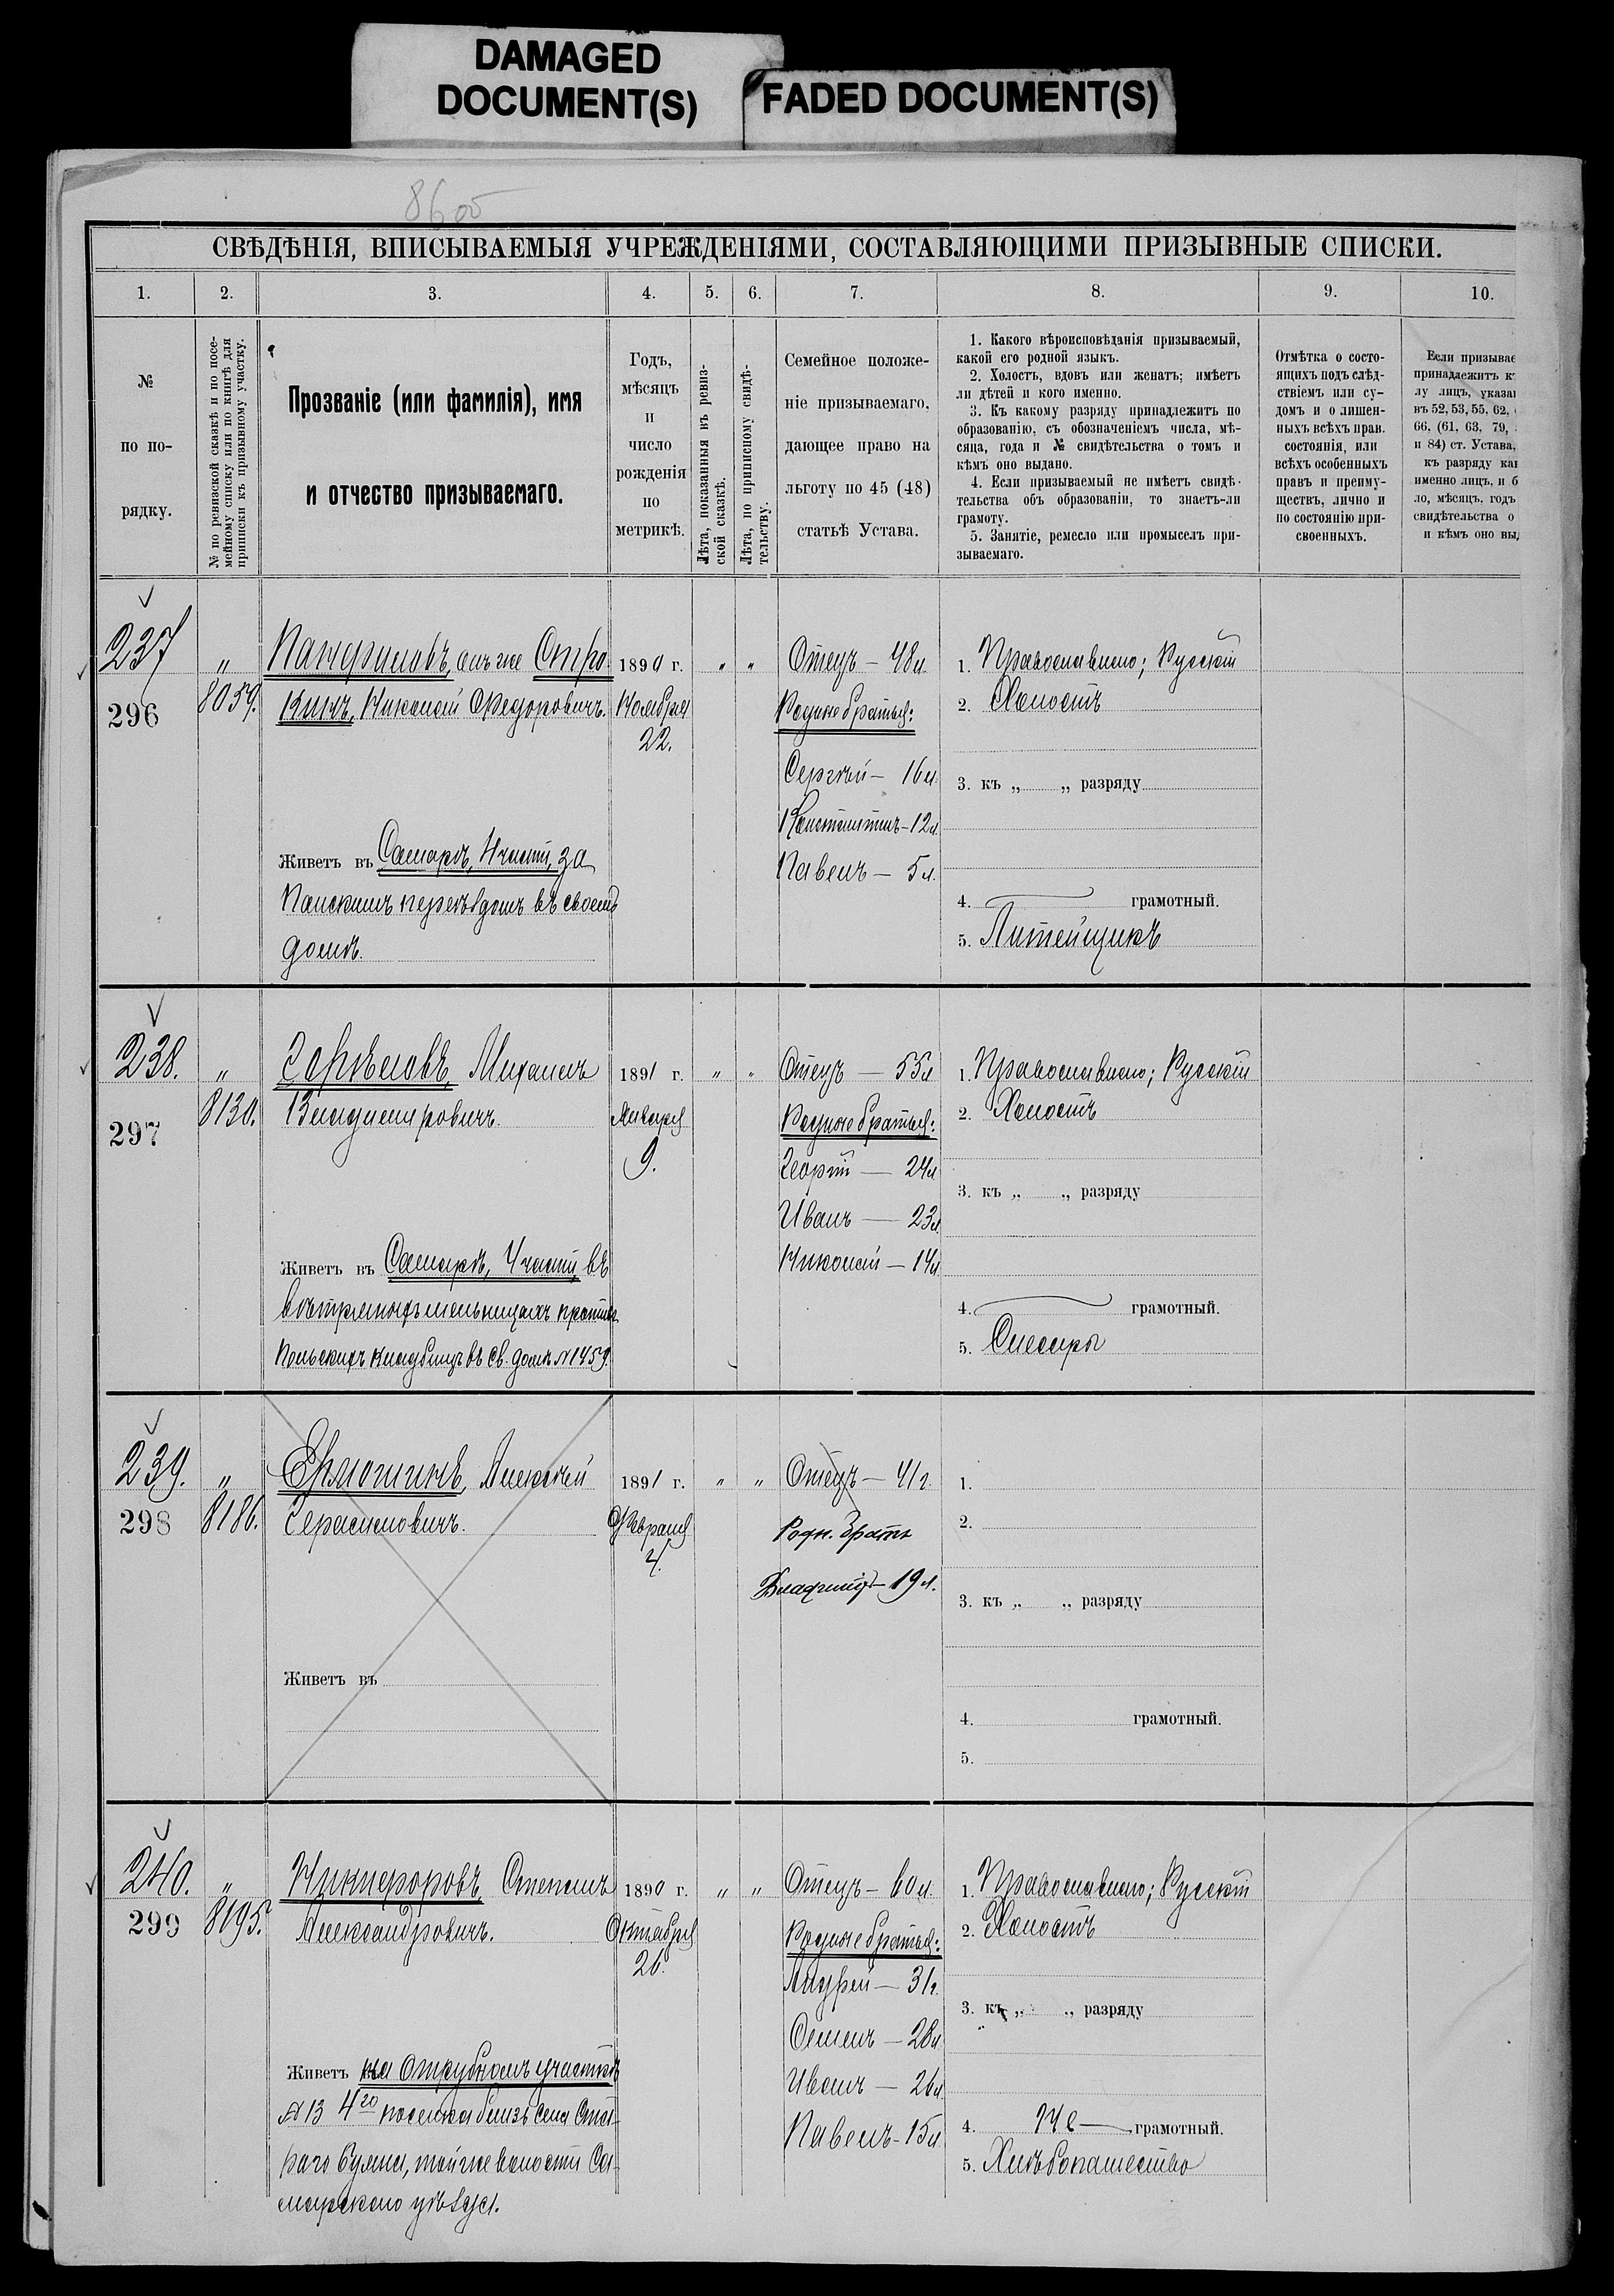 DAMAGED
DOCUMENT(S)
FADED DOCUMENT(S)
8600
СВѢДѢНІЯ, ВПИСЫВАЕМЫЯ УЧРЕЖДЕНІЯМИ, СОСТАВЛЯЮЩИМИ ПРИЗЫВНЫЕ СПИСКИ.
1. 2. 3. 4. 5. 6. 7. 8. 9. 10.
№
по по-
рядку.
№ по ревизской сказкѣ и по посе-
мейному списку или по книгѣ для
приписки къ призывному участку.
Прозваніе (или фамилія), имя
и отчество призываемаго.
Годъ,
мѣсяцъ
и
число
рожденія
по
метрикѣ.
Лѣта, показанныя въ ревиз-
ской сказкѣ.
Лѣта, по приписному свидѣ-
тельству.
Семейное положе-
ніе призываемаго,
дающее право на
льготу по 45 (48)
статьѣ Устава.
1. Какого вѣроисповѣданія призываемый,
какой его родной языкъ.
2. Холостъ, вдовъ или женатъ; имѣетъ
ли дѣтей и кого именно.
3. Къ какому разряду принадлежитъ по
образованію, съ обозначеніемъ числа, мѣ-
сяца, года и № свидѣтельства о томъ и
кѣмъ оно выдано.
4. Если призываемый не имѣетъ свидѣ-
тельства объ образованіи, то знаетъ-ли
грамоту.
5. Занятіе, ремесло или промыселъ при-
зываемаго.
Отмѣтка о состо-
ящихъ подъ слѣд-
ствіемъ или су-
домъ и о лишен-
ныхъ всѣхъ прав.
состоянія, или
всѣхъ особенныхъ
правъ и преиму-
ществъ, лично и
по состоянію при-
своенныхъ.
Если призывае
принадлежитъ к
лу лицъ, указан
въ 52, 53, 55, 62,
66, (61, 63, 79,
и 84) ст. Устава,
къ разряду как
именно лицъ, и б
ло, мѣсяцъ, годъ
свидѣтельства о
и кѣмъ оно вы
237
296
" 8059.
Панфиловъ, онъ же Стро
кинъ, Николай Федоровичъ.
Живетъ въ Самарѣ, 4 части, за
Панскимъ переѣздомъ въ своемъ
домѣ.
1890 г.
Ноября
22.
" "
Отецъ — 48 л.
Родные братья:
Сергѣй — 16 л.
Константинъ — 12 л.
Павелъ — 5 л.
1. Православнаго; Русскій
2. Холостъ
3. къ „ „ разряду
4. грамотный.
5. Литейщикъ
238.
297
" 8130.
Горѣловъ, Михаилъ
Владиміровичъ.
Живетъ въ Самарѣ, 4 части, въ
вѣтряныхъ мельницахъ противъ
Польскихъ кладбищъ въ св. домѣ № 1459.
1891 г.
Января
9.
" "
Отецъ — 55 л.
Родные братья:
Георгій — 24 л.
Иванъ — 23 л.
Николай — 14 л.
1. Православнаго; Русскій
2. Холостъ
3. къ „ „ разряду
4. грамотный.
5. Слесарь
239.
298
" 8186.
Ермошинъ, Алексѣй
Герасимовичъ.
Живетъ въ
1891 г.
Февраля
4.
" "
Отецъ — 41 г.
Родн. братъ
Владиміръ — 19 л.
1.
2.
3. къ „ „ разряду
4. грамотный.
5.
240.
299
" 8195.
Никифоровъ, Степанъ
Александровичъ.
Живетъ на отрубномъ участкѣ
№ 13 4го поселка близъ села Ста-
раго Буяна, той же волости Са-
марскаго уѣзда.
1890 г.
Октября
26.
" "
Отецъ — 60 л.
Родные братья:
Андрей — 31 г.
Семенъ — 28 л.
Иванъ — 26 л.
Павелъ — 15 л.
1. Православнаго; Русскій
2. Холостъ
3. къ „ „ разряду
4. Не грамотный.
5. Хлѣбопашество